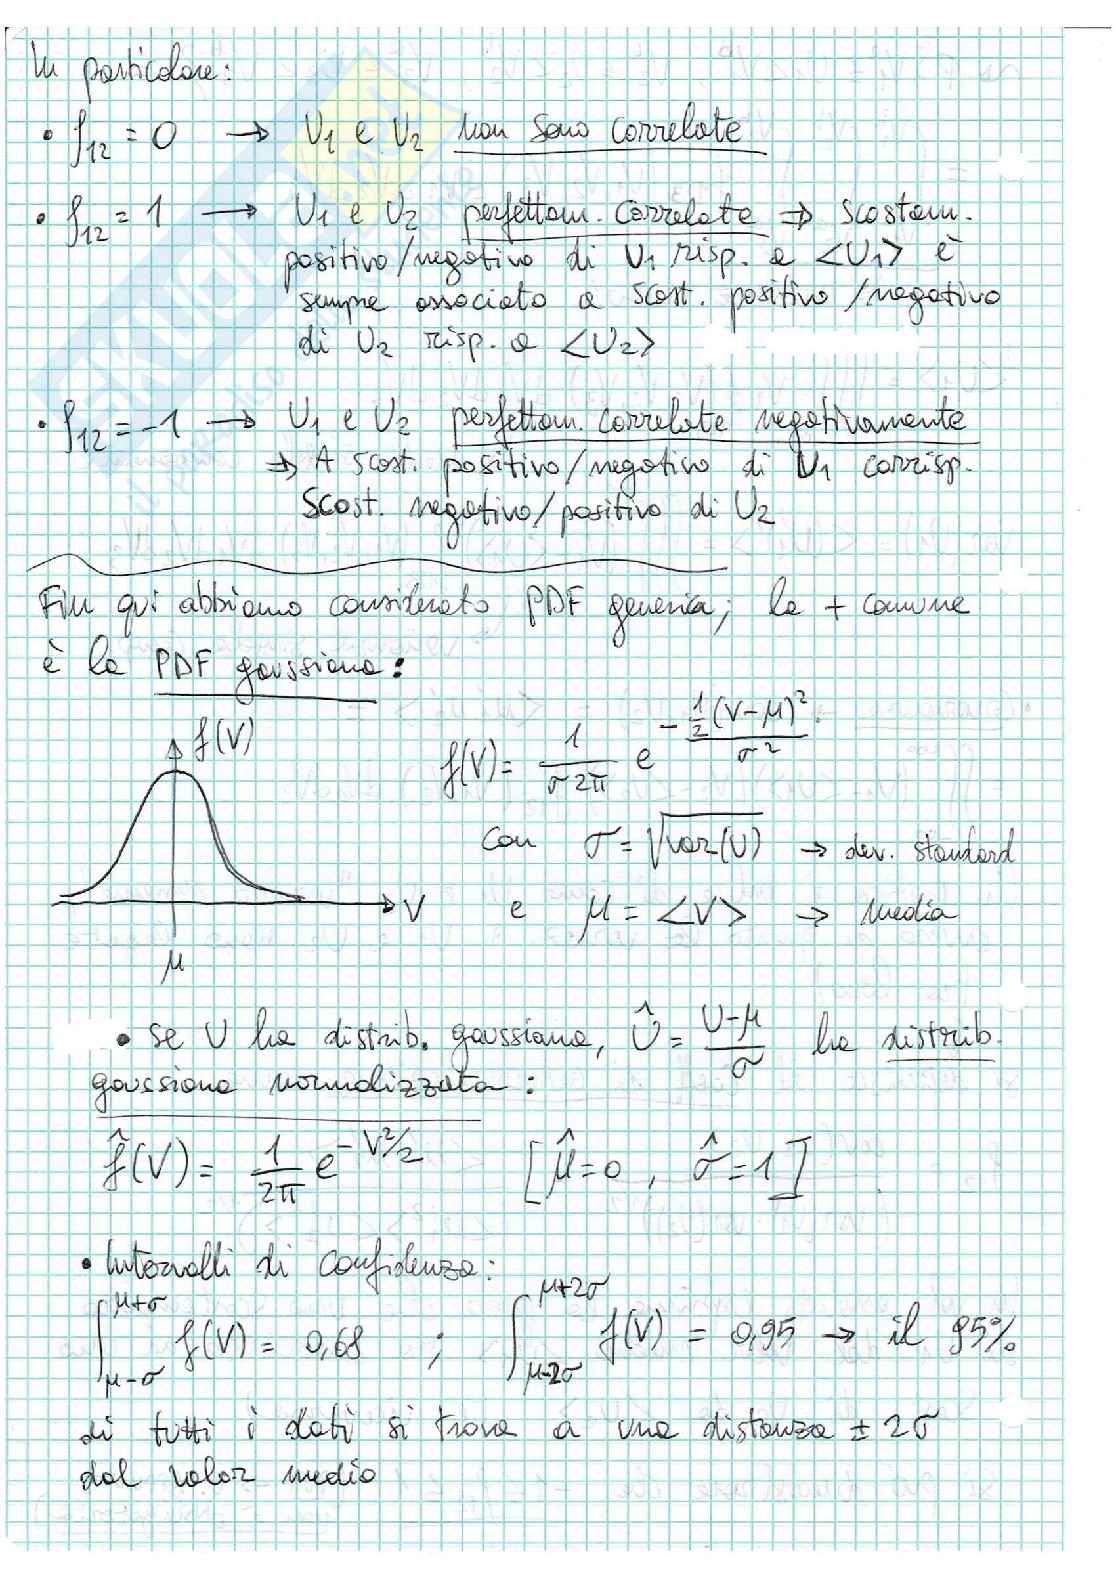 In particolare:
• ρ12 = 0 → U1 e U2 non sono correlate
• ρ12 = 1 → U1 e U2 perfettam. correlate ⇒ scostam.
positivo/negativo di U1 risp. a <U1> è
sempre associato a scost. positivo/negativo
di U2 risp. a <U2>
• ρ12 = -1 → U1 e U2 perfettam. correlate negativamente
⇒ A scost. positivo/negativo di U1 corrisp.
scost. negativo/positivo di U2
Fin qui abbiamo considerato PDF generica; la + comune
è la PDF gaussiana:
f(V)
f(V) = 1/(σ 2π) e^(-1/2 (V-μ)²/σ²)
con σ = √var(U) → dev. standard
V e μ = <V> → media
μ
• Se U ha distrib. gaussiana, Û = (U-μ)/σ ha distrib.
gaussiana normalizzata:
f̂(V) = 1/2π e^(-V²/2) [μ̂=0, σ̂=1]
• Intervalli di confidenza:
∫_{μ-σ}^{μ+σ} f(V) = 0,68 ; ∫_{μ-2σ}^{μ+2σ} f(V) = 0,95 → il 95%
di tutti i dati si trova a una distanza ± 2σ
dal valor medio